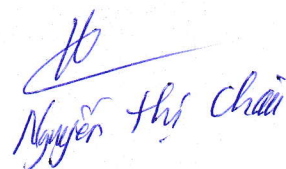 Nguyễn Thị Châu